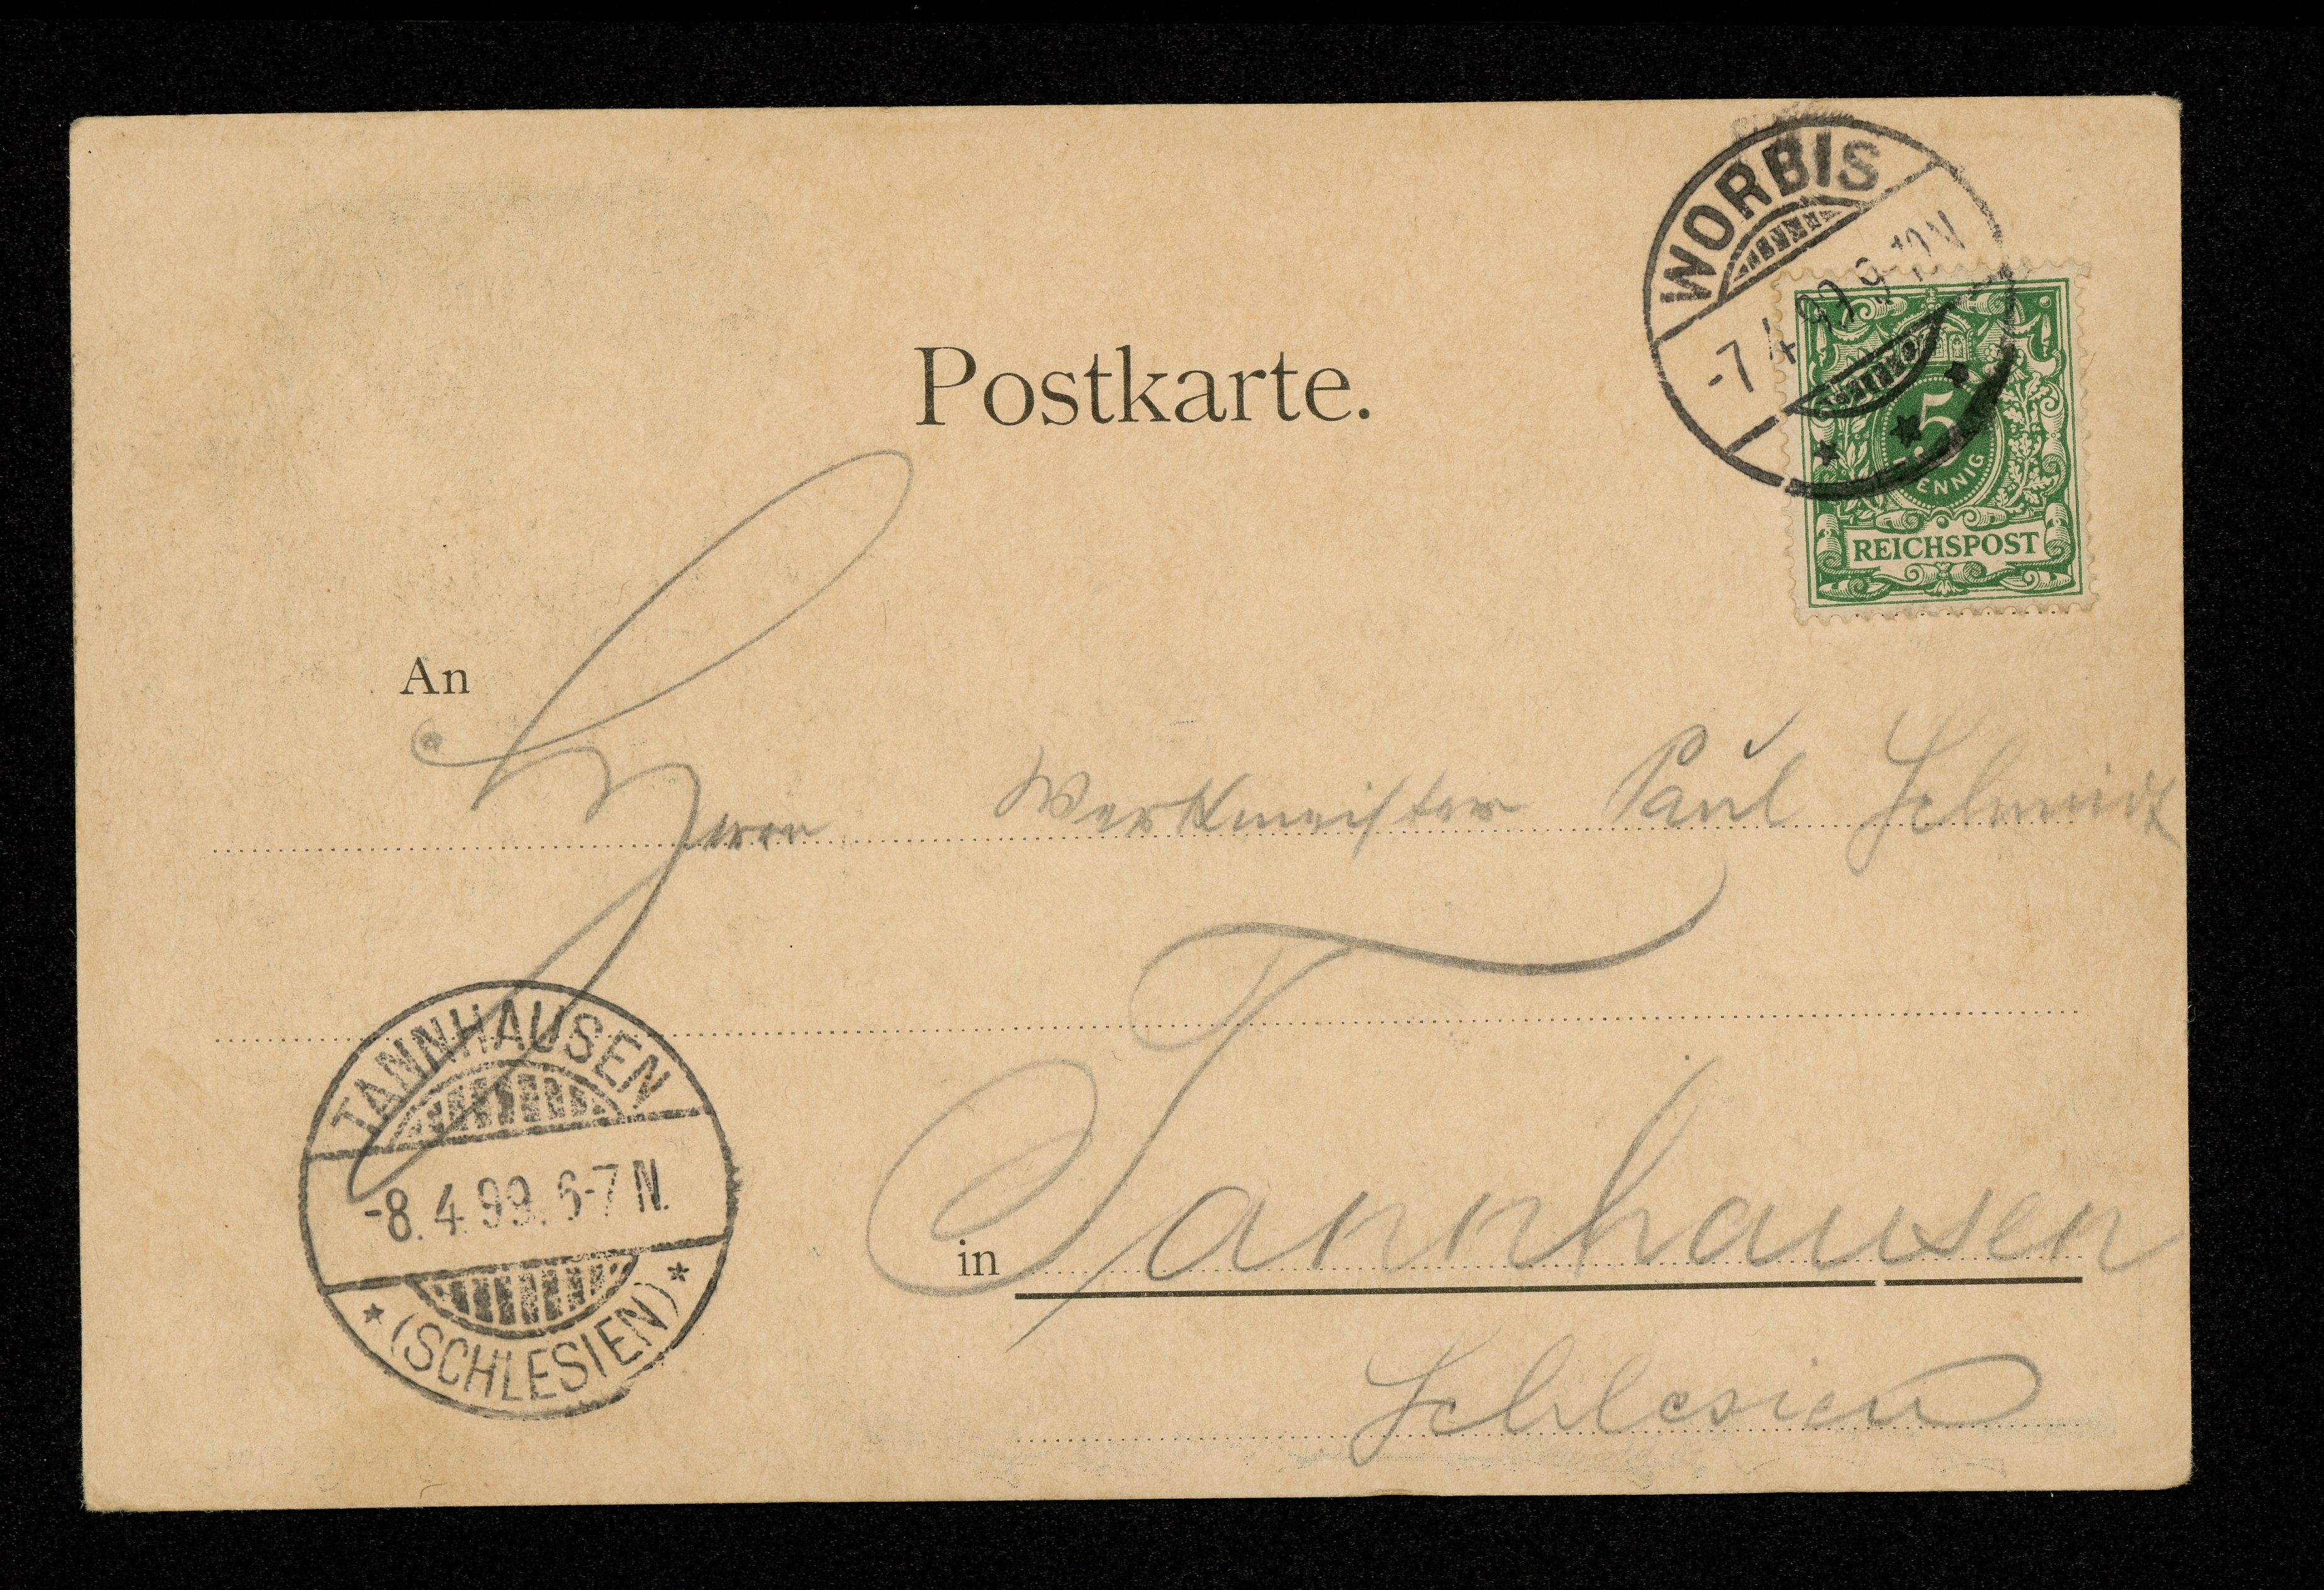 Postkarte.
WORBIS
-7 4 99 9-10N
5
PFENNIG
REICHSPOST
An
Herrn Werkmeister Paul Schmidt
in Tannhausen
Schlesien
TANNHAUSEN
-8. 4. 99. 6-7 N.
(SCHLESIEN)